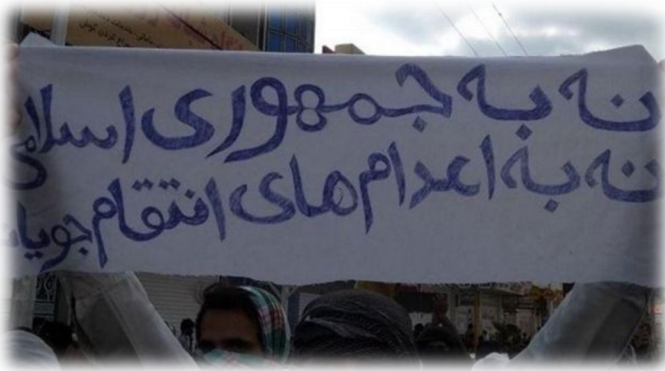 نه به جمهوری اسلامی
نه به اعدام‌های انتقام